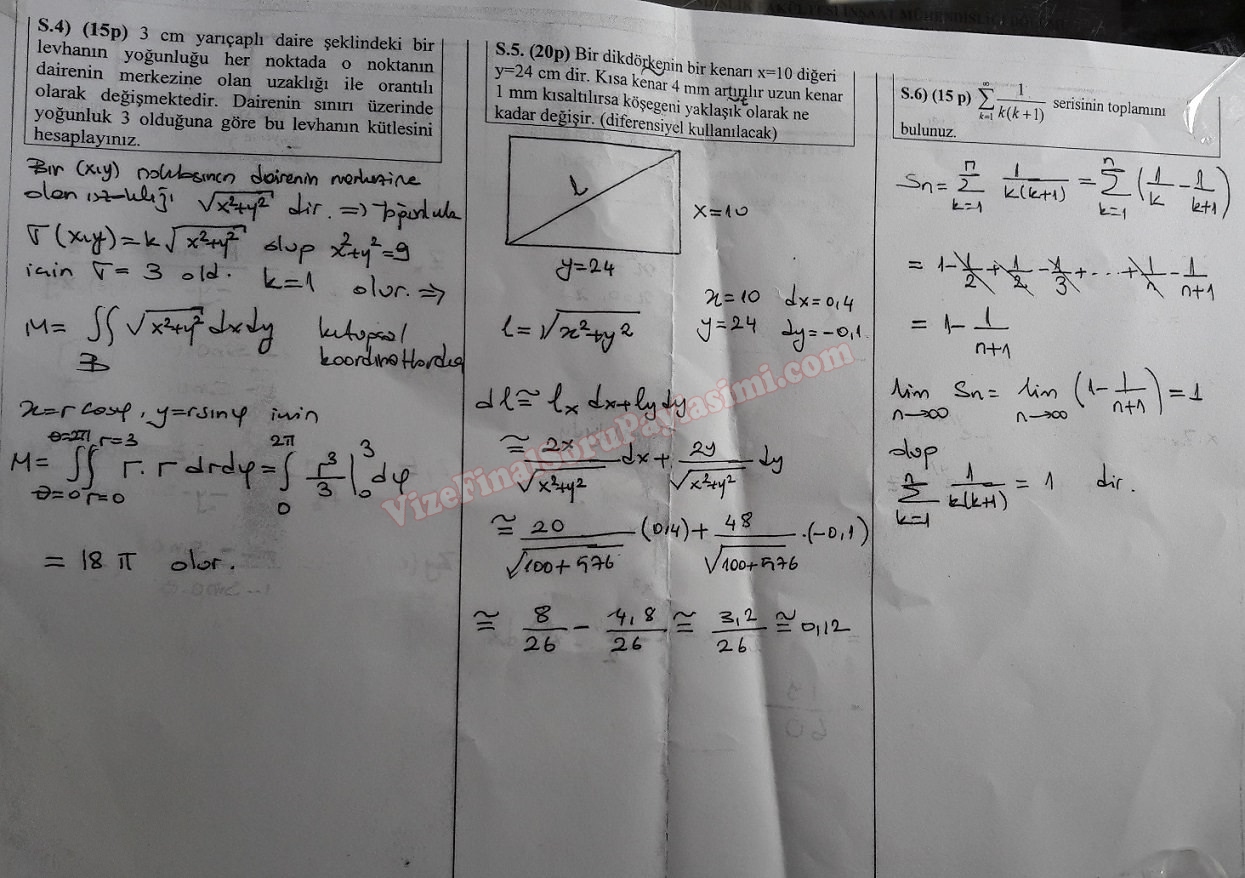 S.4) (15p) 3 cm yarıçaplı daire şeklindeki bir
levhanın yoğunluğu her noktada o noktanın
dairenin merkezine olan uzaklığı ile orantılı
olarak değişmektedir. Dairenin sınırı üzerinde
yoğunluk 3 olduğuna göre bu levhanın kütlesini
hesaplayınız.
Bir (x,y) noktasının dairenin merkezine
olan uzaklığı √x²+y² dir. ⇒
σ(x,y) = k√x²+y² olup x²+y²=9
için σ = 3 old. k=1 olur. ⇒
M= ∬ √x²+y² dxdy kutupsal
B koordinatlarda
x=r cosφ, y=r sinφ için
θ=2π r=3 2π
M= ∬ r. r dr dφ = ∫ r³/3 |₀³ dφ
θ=0 r=0 0
= 18 π olur.
S.5. (20p) Bir dikdörkenin bir kenarı x=10 diğeri
y=24 cm dir. Kısa kenar 4 mm artırılır uzun kenar
1 mm kısaltılırsa köşegeni yaklaşık olarak ne
kadar değişir. (diferensiyel kullanılacak)
l
x=10
y=24
x=10 dx=0,4
l=√x²+y² y=24 dy=-0,1
dl ≅ lx dx + ly dy
≅ 2x/√x²+y² dx + 2y/√x²+y² dy
≅ 20/√100+576 (0,4) + 48/√100+576 .(-0,1)
≅ 8/26 - 4,8/26 ≅ 3,2/26 ≅ 0,12
S.6) (15 p) ∑_{k=1}^{∞} 1/k(k+1) serisinin toplamını
bulunuz.
Sn= ∑_{k=1}^{n} 1/k(k+1) = ∑_{k=1}^{n} (1/k - 1/k+1)
= 1 - 1/2 + 1/2 - 1/3 + ... + 1/n - 1/n+1
= 1 - 1/n+1
lim_{n→∞} Sn = lim_{n→∞} (1 - 1/n+1) = 1
olup
∑_{k=1}^{n} 1/k(k+1) = 1 dir.
VizeFinalSoruPaylasimi.com